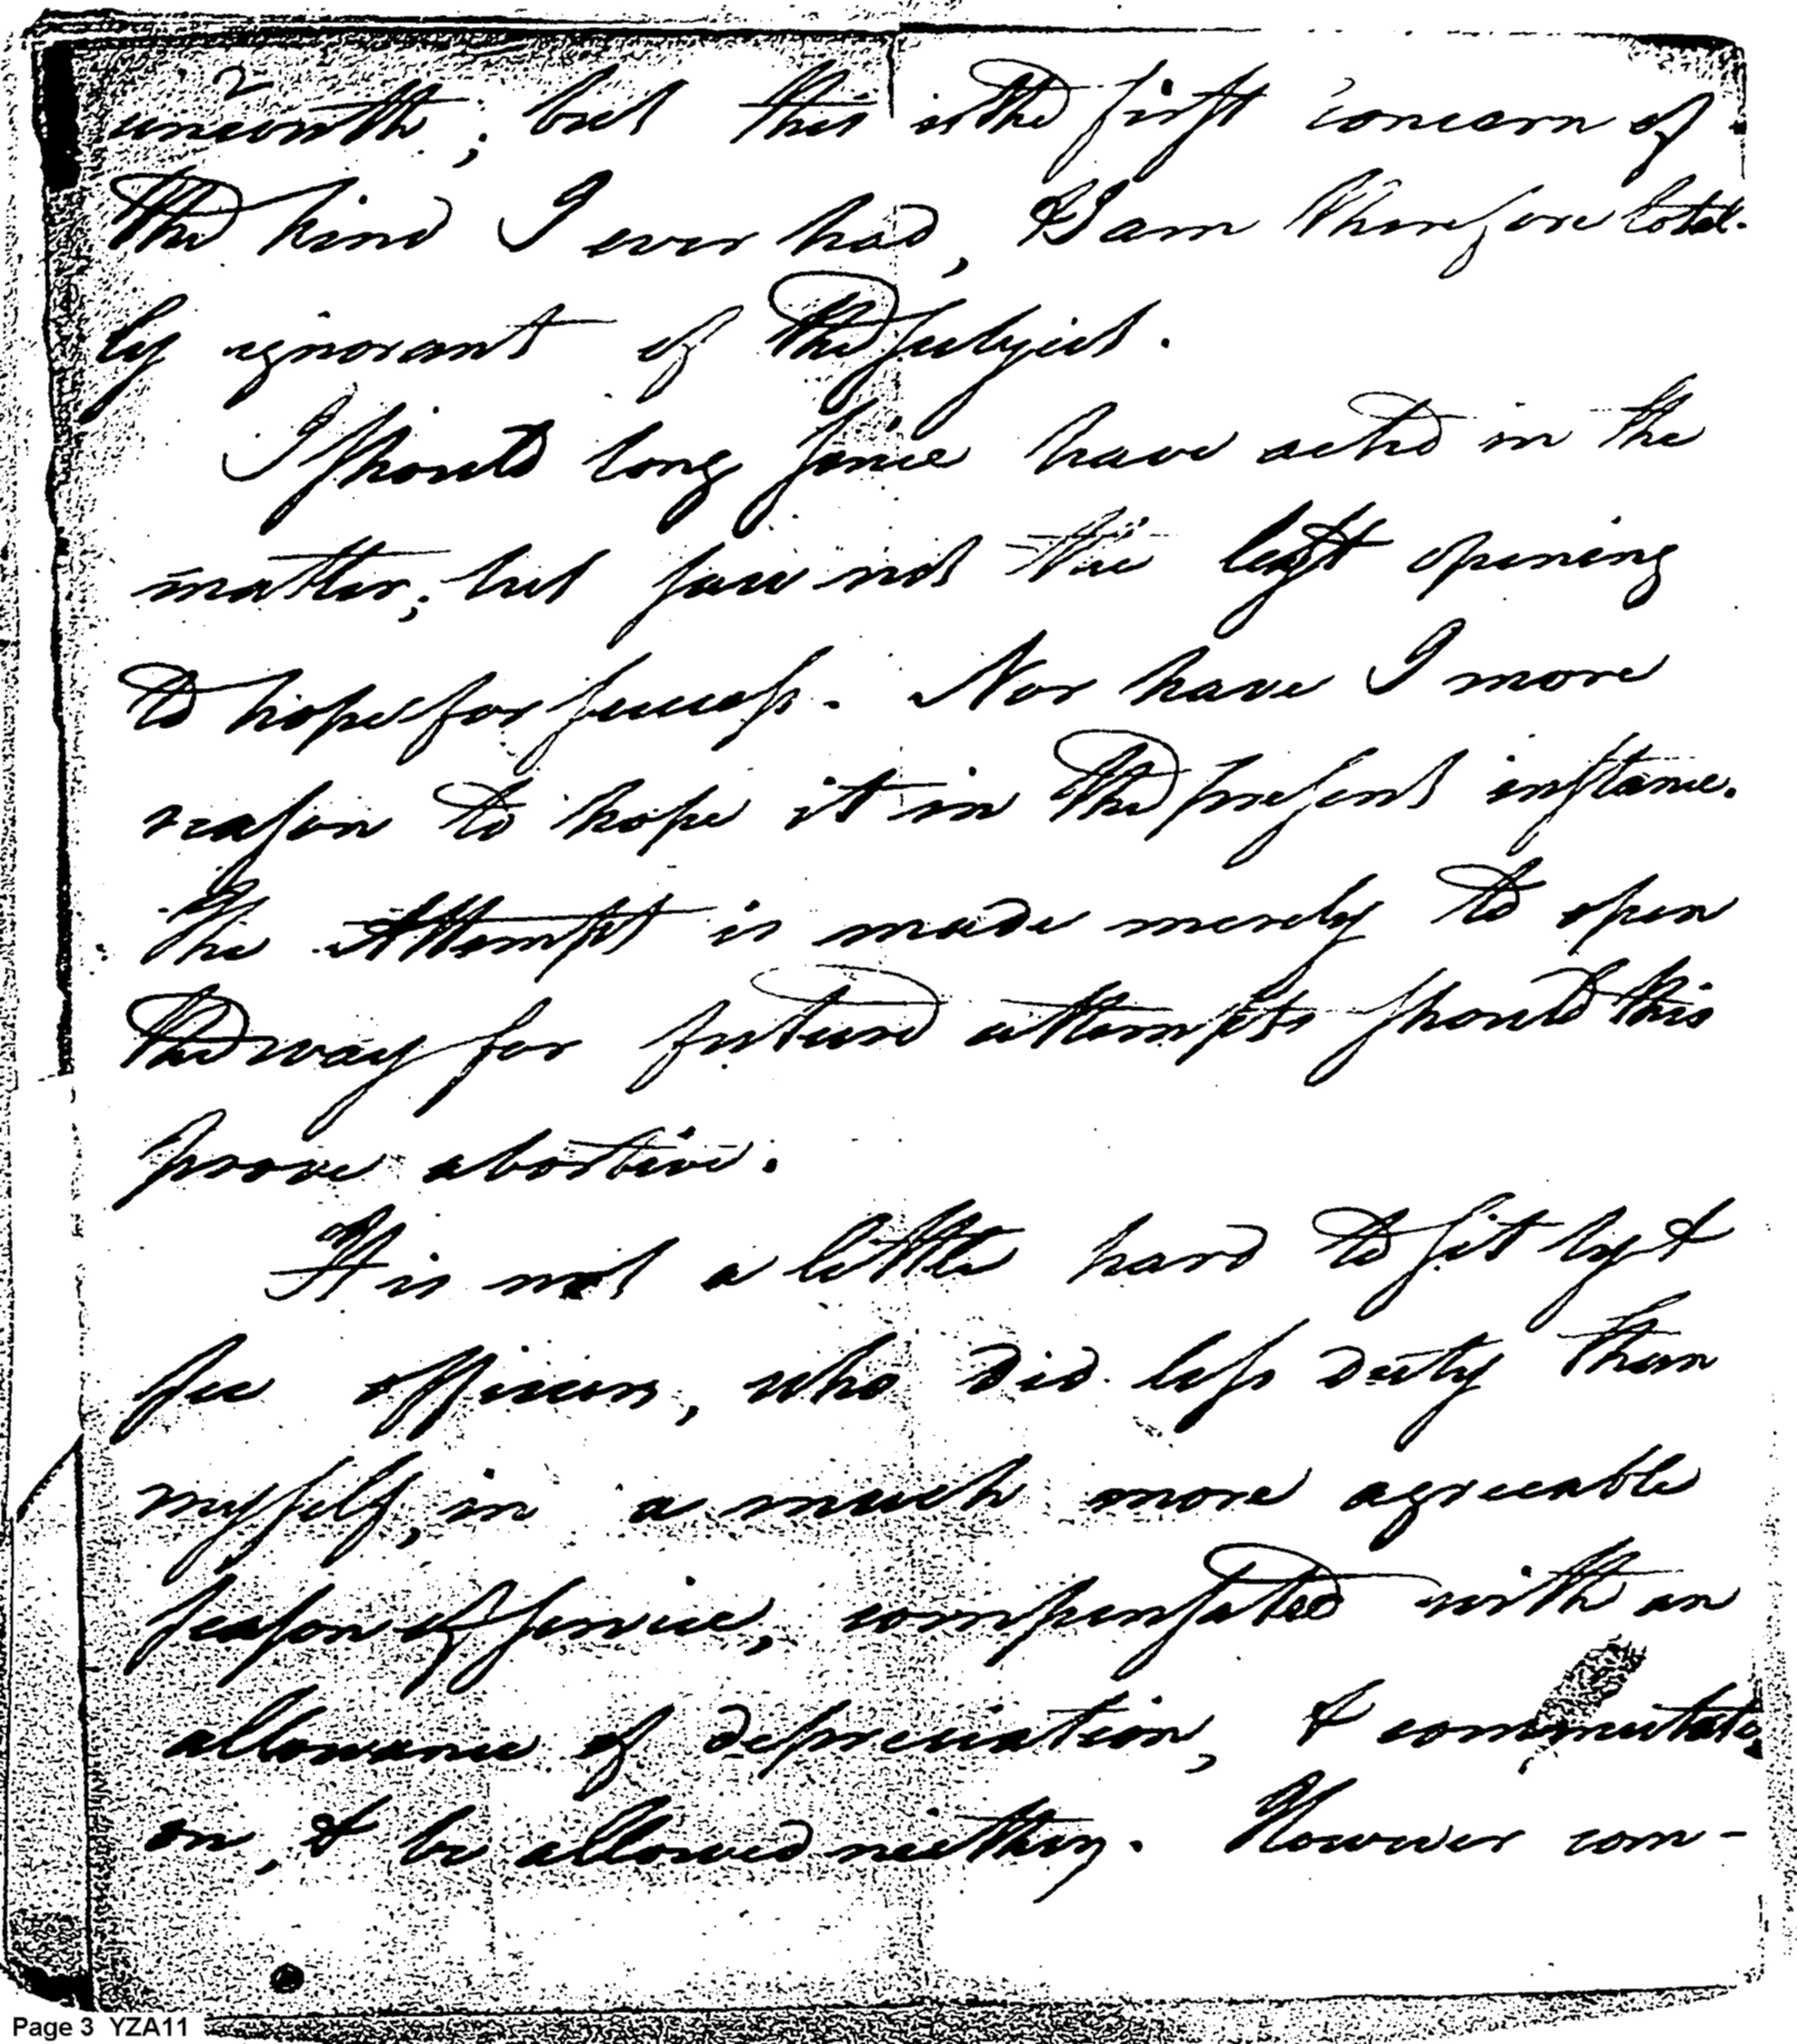 2
uncouth; but this is the first concern of
the kind I ever had, & I am therefore total-
ly ignorant of the subject.
I should long since have acted in the
matter; but saw not the least opening
to hope for success. Nor have I more
reason to hope it in the present instance.
The Attempt is made merely to open
the way for future attempts should this
prove abortive.
It is not a little hard to sit by &
see officers, who did less duty than
myself, in a much more agreeable
season of service, compensated with an
allowance of depreciation, & commutati-
on, & be allowed neither. However com-
Page 3 YZA11